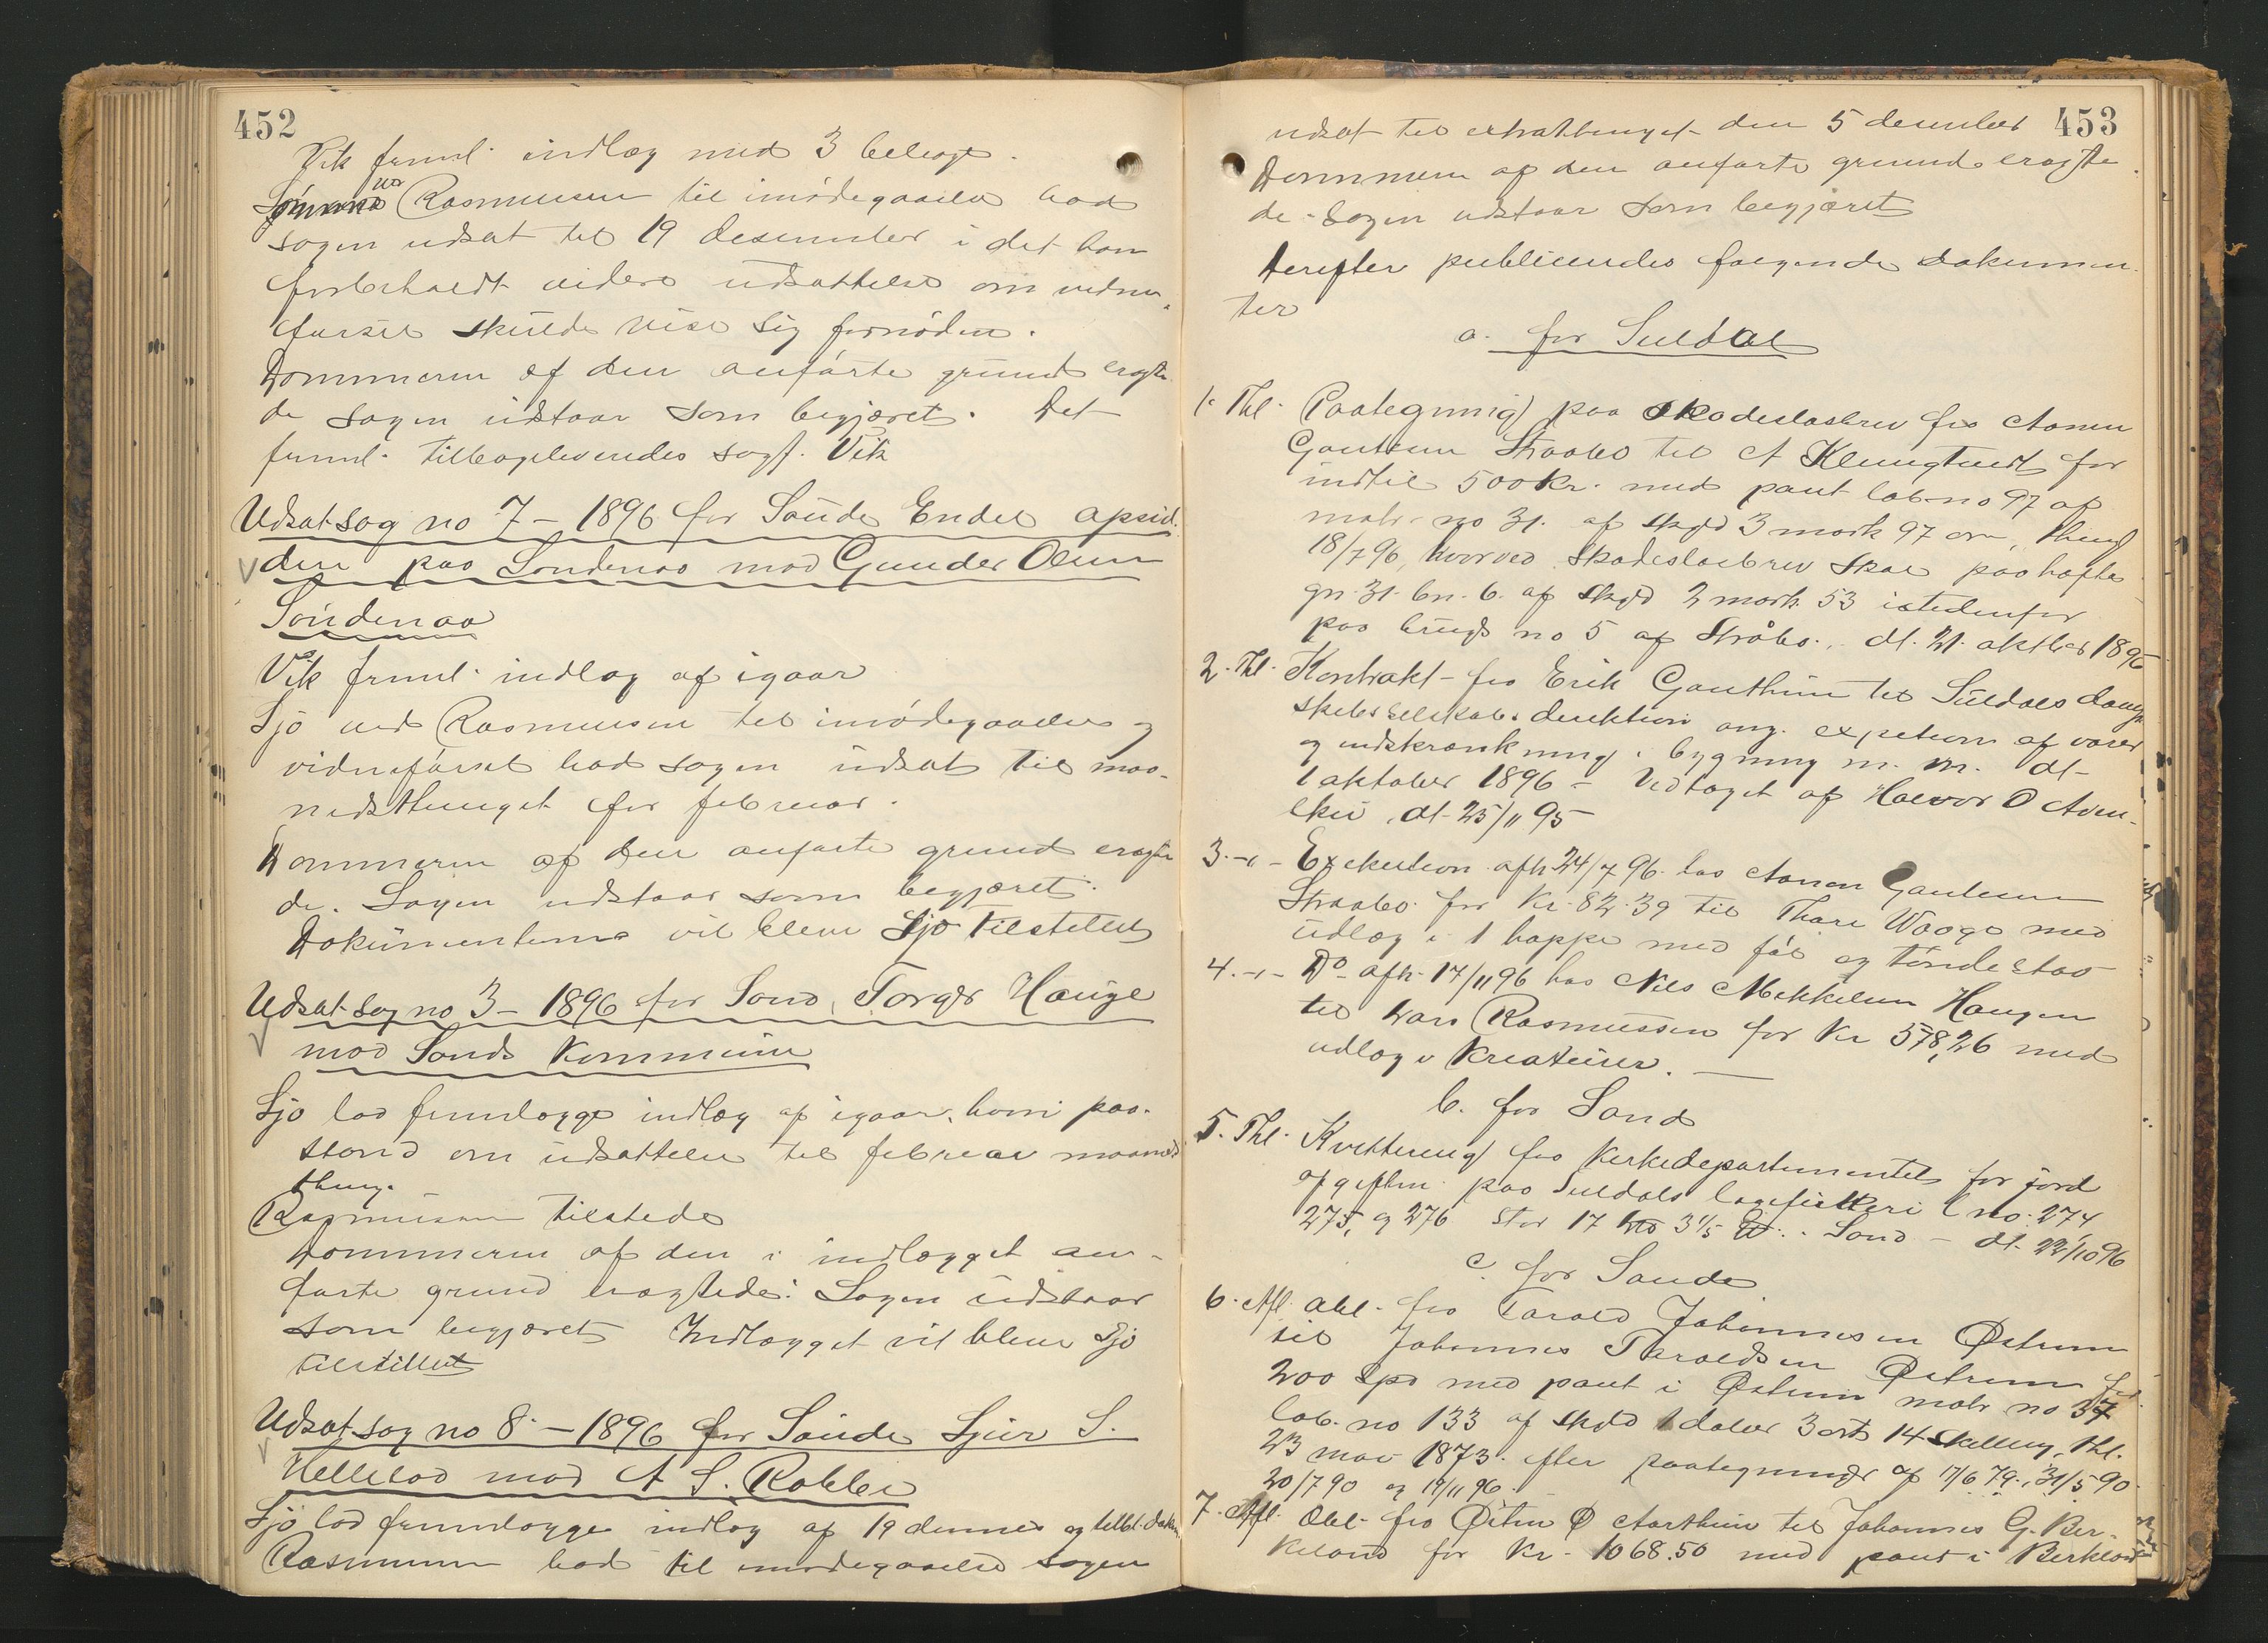 452
Vik freml. indlæg med 3 bilage.
Rasmussen til imødegaaelse bad
sagen udsat til 19 desember i det han
forbeholdt videre udsættelse om vidne-
førsel skulde vise sig fornøden.
Dommeren af den anførte grund eragte-
de sagen udstaar som begjæret. Det
freml. tilbageleveredes sagf. Vik
Udsat sag no 7 - 1896 for Saude Endel opsid-
den paa Søndenaa mod Gunder Olsen
Søndenaa
Vik freml. indlæg af igaar
Sjo ved Rasmussen til imødegaaelse og
vidneførsel bad sagen udsat til maa-
nedsthinget for februar.
Dommeren af den anførte grund eragte-
de. Sagen udstaar som begjæret.
Dokumenterne vil blive Sjo tilstillet
Udsat sag no 3 - 1896 for Sand, Torger Hauge
mod Sands kommune
Sjo lod fremlægge indlæg af igaar, hvori paa-
stand om udsættelse til februar maaneds
thing.
Rasmussen tilstede
Dommeren af den i indlægget an-
førte grund eragtede: Sagen udstaar
som begjæret Indlægget vil blive Sjo
tilstillet
Udsat sag no 8 - 1896 for Saude Sjur S.
Helleland mod A S. Rabbe
Sjo lod fremlægge indlæg af 19 dennes og tilbl. dokum.
Rasmussen bad til imødegaaelse sagen
453
udsat til extrathinget den 5 december
Dommeren af den anførte grund eragte-
de. Sagen udstaar som begjæret
Derefter publiceredes følgende dokumen-
ter
a. for Suldal
1. Thl. Paategning paa skadesløsbrev fra Aanen
Gautesen Straabø til A Klungtvedt for
indtil 500 kr. med pant løb-no 97 af
matr. no 31. af skyld 3 mark 97 øre, thingl
18/7 96, hvorved skadesløsbrev skal paahæfte
gn. 31. bn. 6. af skyld 2 mark 53 istedenfor
paa brugs no 5 af Stråbø. dt. 21. oktober 1896
2. Thl. Kontrakt fra Erik Gauthun til Suldals damp-
skibsselskabs direktion ang. expetion af varer
og indskrænkning i bygning m. m. dt-
1 oktober 1896 - Vedtaget af Halvor O
dt 25/11 95
3. -"- Exekution afh 24/7 96. hos Aanen Gautesen
Straabø for kr. 82.39 til Thore Waage med
udlæg i 1 hoppe med føl og
4. -"- Do afh. 17/11 96 hos Nils Mikkelsen Haugen
til Lars Rasmussen for kr 578,26 med
udlæg i kreaturer.
b. for Sand
5. Thl. Kvittering fra Kirkedepartementet for jord
afgiften paa Suldals lagfisketeri l no. 274,
275, og 276 stor 17 3 1/5 Sand - dt. 22/10 96
c. for Saude
6. Afl. obl. fra Tarald Johannesen Østrem
til Johannes Taraldsen Østrem for
200 Spd med pant i Østrem matr no 37
løb. no 133 af skyld 1 daler 3 ort 14 skilling, thl.
23 mai 1873. efter paategninger af 17/6 79., 31/5 90
30/7 90 og 19/11 96.
7. Afl. Obl. fra Østen Ø Aarthun til Johannes G. Ber-
keland for kr. 1068.50 med pant i Berkland